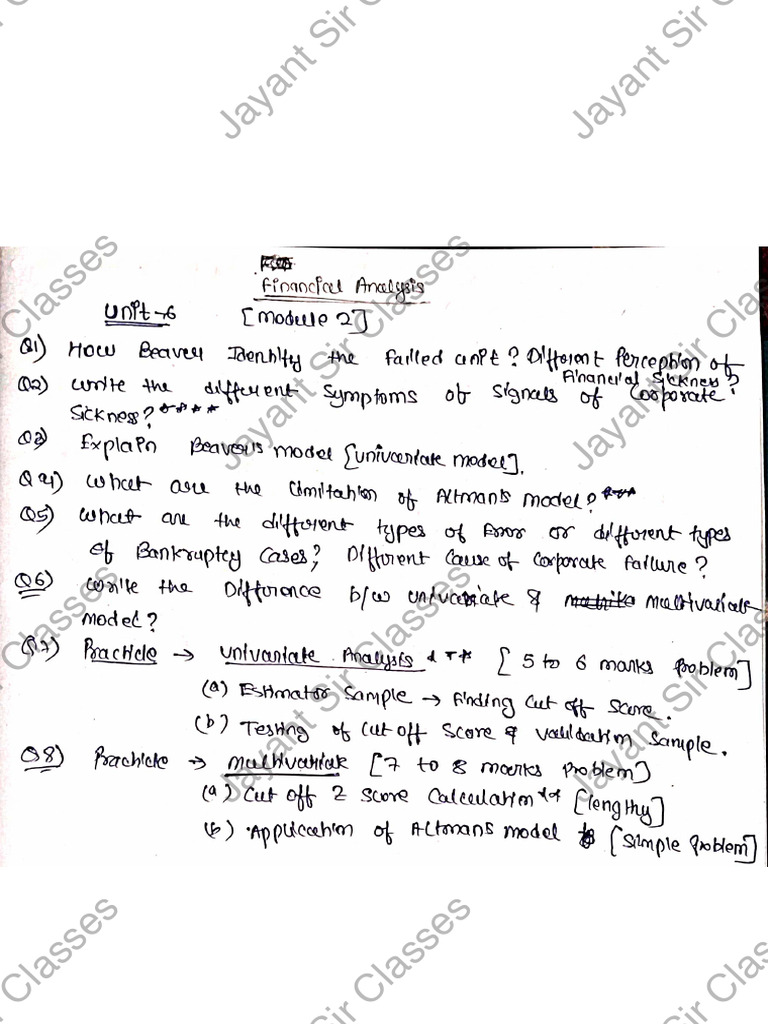 Financial Analysis
Unit-6 [Module 2]
Q1) How Beaver Identify the failled unit? Different Perception of
Financial Sickness?
Q2) write the different Symptoms of Signals of Corporate
Sickness? ****
Q3) Explain Beavers model [univariate model].
Q4) What are the Limitation of Altmans model? ***
Q5) What are the different types of Error or different types
of Bankruptcy Cases? Different Cause of Corporate failure?
Q6) Write the Difference b/w univariate & multivariate
model?
Q7) Practicle → Univariate Analysis *** [5 to 6 marks Problem]
(a) Estimator Sample → Finding Cut off Score.
(b) Testing of Cut off Score & Validation Sample.
Q8) Practicle → Multivariate [7 to 8 marks Problem]
(a) Cut off Z Score Calculation ** [lengthy]
(b) Application of Altmans model [Simple Problem]
Jayant Sir Classes